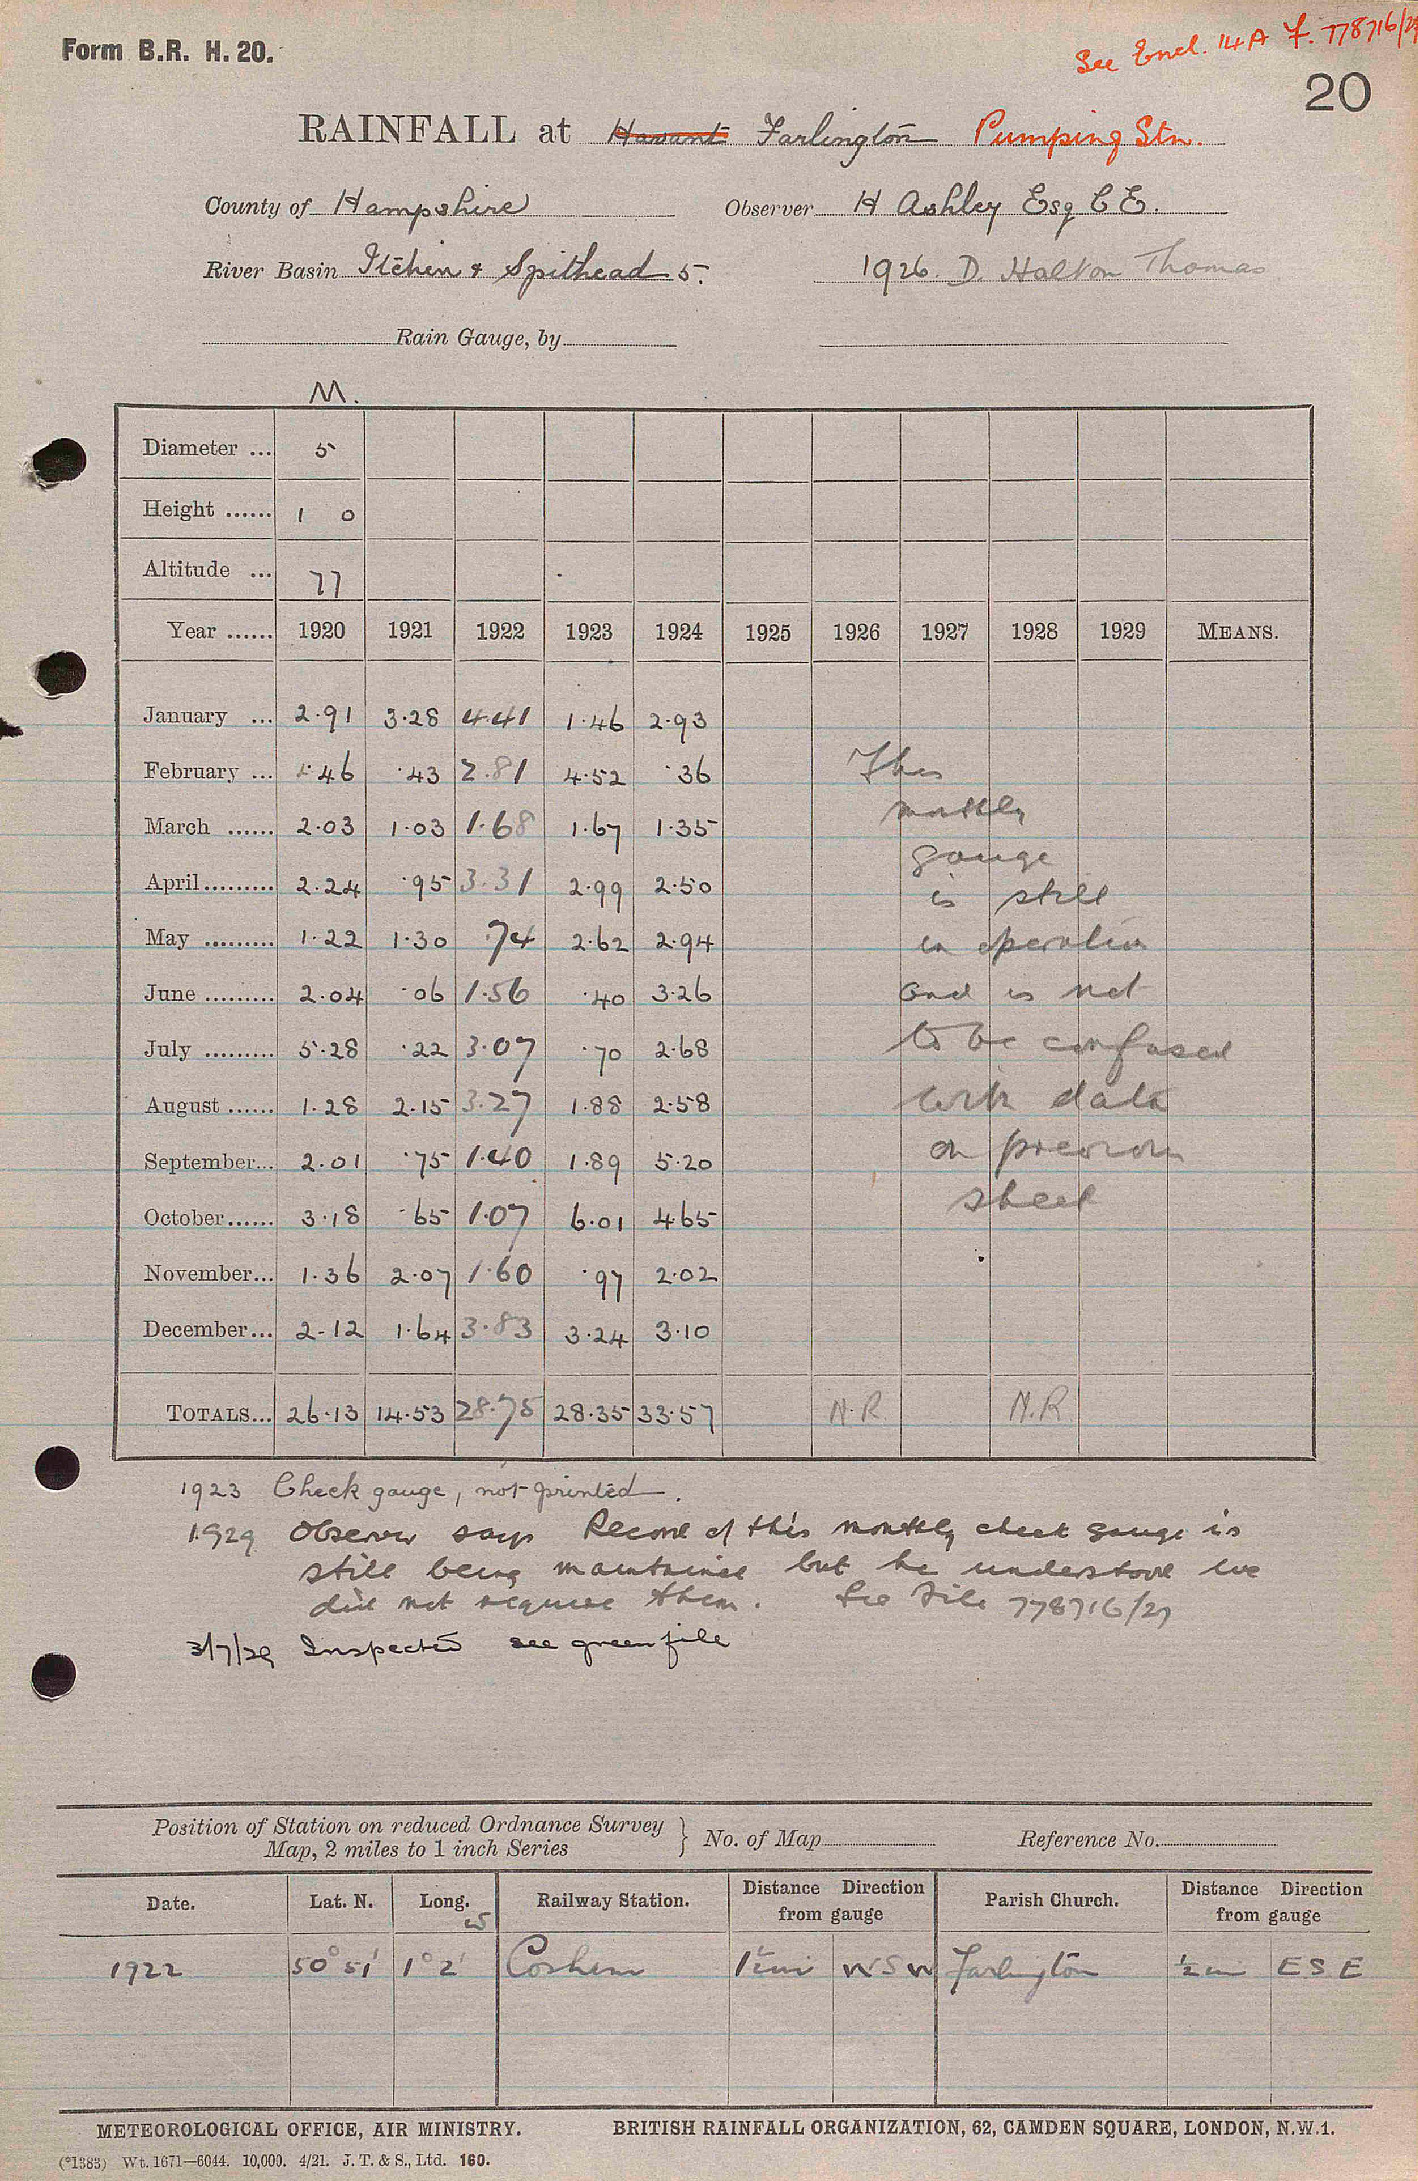 Form B.R. H. 20.
See Encl. 14A F. 778716/29
20
RAINFALL at Havant Farlington Pumping Stn.
County of Hampshire Observer H Ashley Esq C E.
River Basin Itchen & Spithead 5. 1926. D. Halton Thomas
Rain Gauge, by
M.
Diameter ... 5
Height ...... 1 0
Altitude ... 77
Year ...... 1920 1921 1922 1923 1924 1925 1926 1927 1928 1929 MEANS.
January ... 2.91 3.28 4.41 1.46 2.93
February ... .46 .43 2.81 4.52 .36
March ...... 2.03 1.03 1.68 1.67 1.35
April ......... 2.24 .95 3.31 2.99 2.50
May ......... 1.22 1.30 .74 2.62 2.94
June ......... 2.04 .06 1.56 .40 3.26
July ......... 5.28 .22 3.07 .70 2.68
August ...... 1.28 2.15 3.27 1.88 2.58
September... 2.01 .75 1.40 1.89 5.20
October...... 3.18 .65 1.07 6.01 4.65
November... 1.36 2.07 1.60 .97 2.02
December... 2.12 1.64 3.83 3.24 3.10
TOTALS... 26.13 14.53 28.75 28.35 33.57 N.R N.R
This
monthly
gauge
is still
in operation
and is not
to be confused
with data
on previous
sheet
1923 Check gauge, not printed.
1929 Observer says Record of this monthly check gauge is
still being maintained but he understood we
did not require them. See File 778716/27
3/7/29 Inspected see green file
Position of Station on reduced Ordnance Survey
Map, 2 miles to 1 inch Series } No. of Map Reference No.
Date. Lat. N. Long. W Railway Station. Distance Direction from gauge Parish Church. Distance Direction from gauge
1922 50° 51' 1° 2' Cosham 1½mi WSW Farlington ½ m ESE
METEOROLOGICAL OFFICE, AIR MINISTRY. BRITISH RAINFALL ORGANIZATION, 62, CAMDEN SQUARE, LONDON, N.W.1.
(*1383) Wt. 1671—6044. 10,000. 4/21. J. T. & S., Ltd. 160.